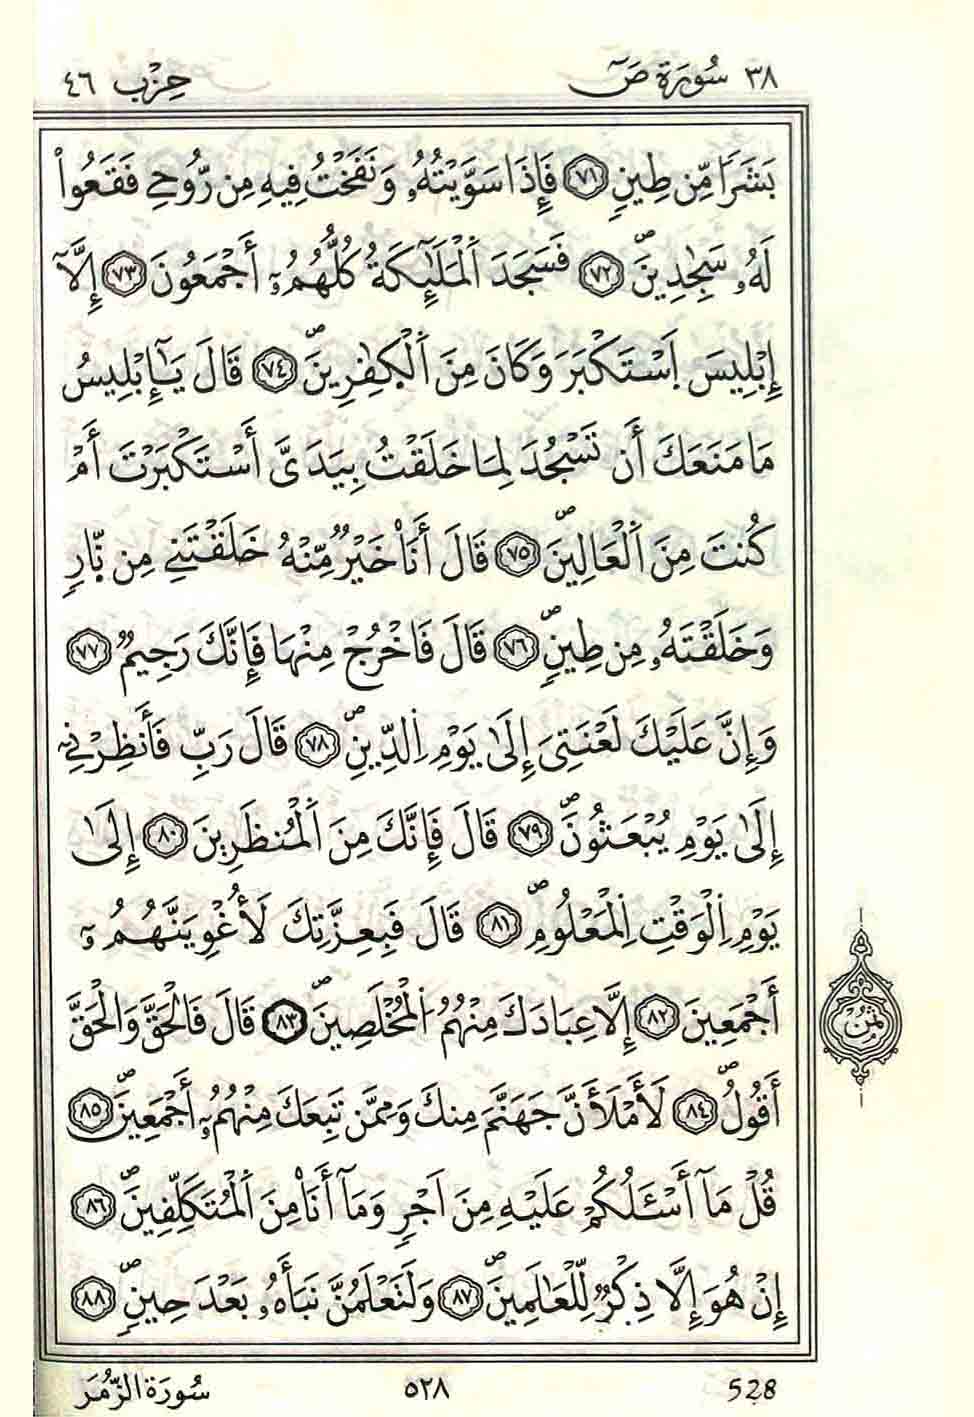 ٣٨ سُورَةُ صَٓ حِزْب ٤٦
بَشَرٗا مِّن طِينٖ ٧١ فَإِذَا سَوَّيْتُهُۥ وَنَفَخْتُ فِيهِ مِن رُّوحِے فَقَعُواْ
لَهُۥ سَٰجِدِينَۖ ٧٢ فَسَجَدَ اَ۬لْمَلَٰٓئِكَةُ كُلُّهُمُۥٓ أَجْمَعُونَ ٧٣ إِلَّآ
إِبْلِيسَ اَ۪سْتَكْبَرَ وَكَانَ مِنَ اَ۬لْكٰ۪فِرِينَۖ ٧٤ قَالَ يَٰٓإِبْلِيسُ
مَا مَنَعَكَ أَن تَسْجُدَ لِمَا خَلَقْتُ بِيَدَيَّ أَسْتَكْبَرْتَ أَمْ
كُنتَ مِنَ اَ۬لْعَالِينَۖ ٧٥ قَالَ أَنَا۠ خَيْرٞ مِّنْهُ خَلَقْتَنِے مِن نّ۪ارٖ
وَخَلَقْتَهُۥ مِن طِينٖۖ ٧٦ قَالَ فَاخْرُجْ مِنْهَا فَإِنَّكَ رَجِيمٞ ٧٧
وَإِنَّ عَلَيْكَ لَعْنَتِيَ إِلَىٰ يَوْمِ اِ۬لدِّينِۖ ٧٨ قَالَ رَبِّ فَأَنظِرْنِےٓ
إِلَىٰ يَوْمِ يُبْعَثُونَۖ ٧٩ قَالَ فَإِنَّكَ مِنَ اَ۬لْمُنظَرِينَ ٨٠ إِلَىٰ
يَوْمِ اِ۬لْوَقْتِ اِ۬لْمَعْلُومِۖ ٨١ قَالَ فَبِعِزَّتِكَ لَأُغْوِيَنَّهُمُۥٓ
أَجْمَعِينَ ٨٢ إِلَّا عِبَادَكَ مِنْهُمُ اُ۬لْمُخْلَصِينَۖ ٨٣ قَالَ فَالْحَقَّ وَالْحَقَّ
ثُمُن
أَقُولُۖ ٨٤ لَأَمْلَأَنَّ جَهَنَّمَ مِنكَ وَمِمَّن تَبِعَكَ مِنْهُمُۥٓ أَجْمَعِينَۖ ٨٥
قُلْ مَآ أَسْـَٔلُكُمْ عَلَيْهِ مِنَ اَجْرٖ وَمَآ أَنَا۠ مِنَ اَ۬لْمُتَكَلِّفِينَۖ ٨٦
إِنْ هُوَ إِلَّا ذِكْرٞ لِّلْعَٰلَمِينَۖ ٨٧ وَلَتَعْلَمُنَّ نَبَأَهُۥ بَعْدَ حِينٖۖ ٨٨
528 ٥٢٨ سُورَةُ الزُّمَر